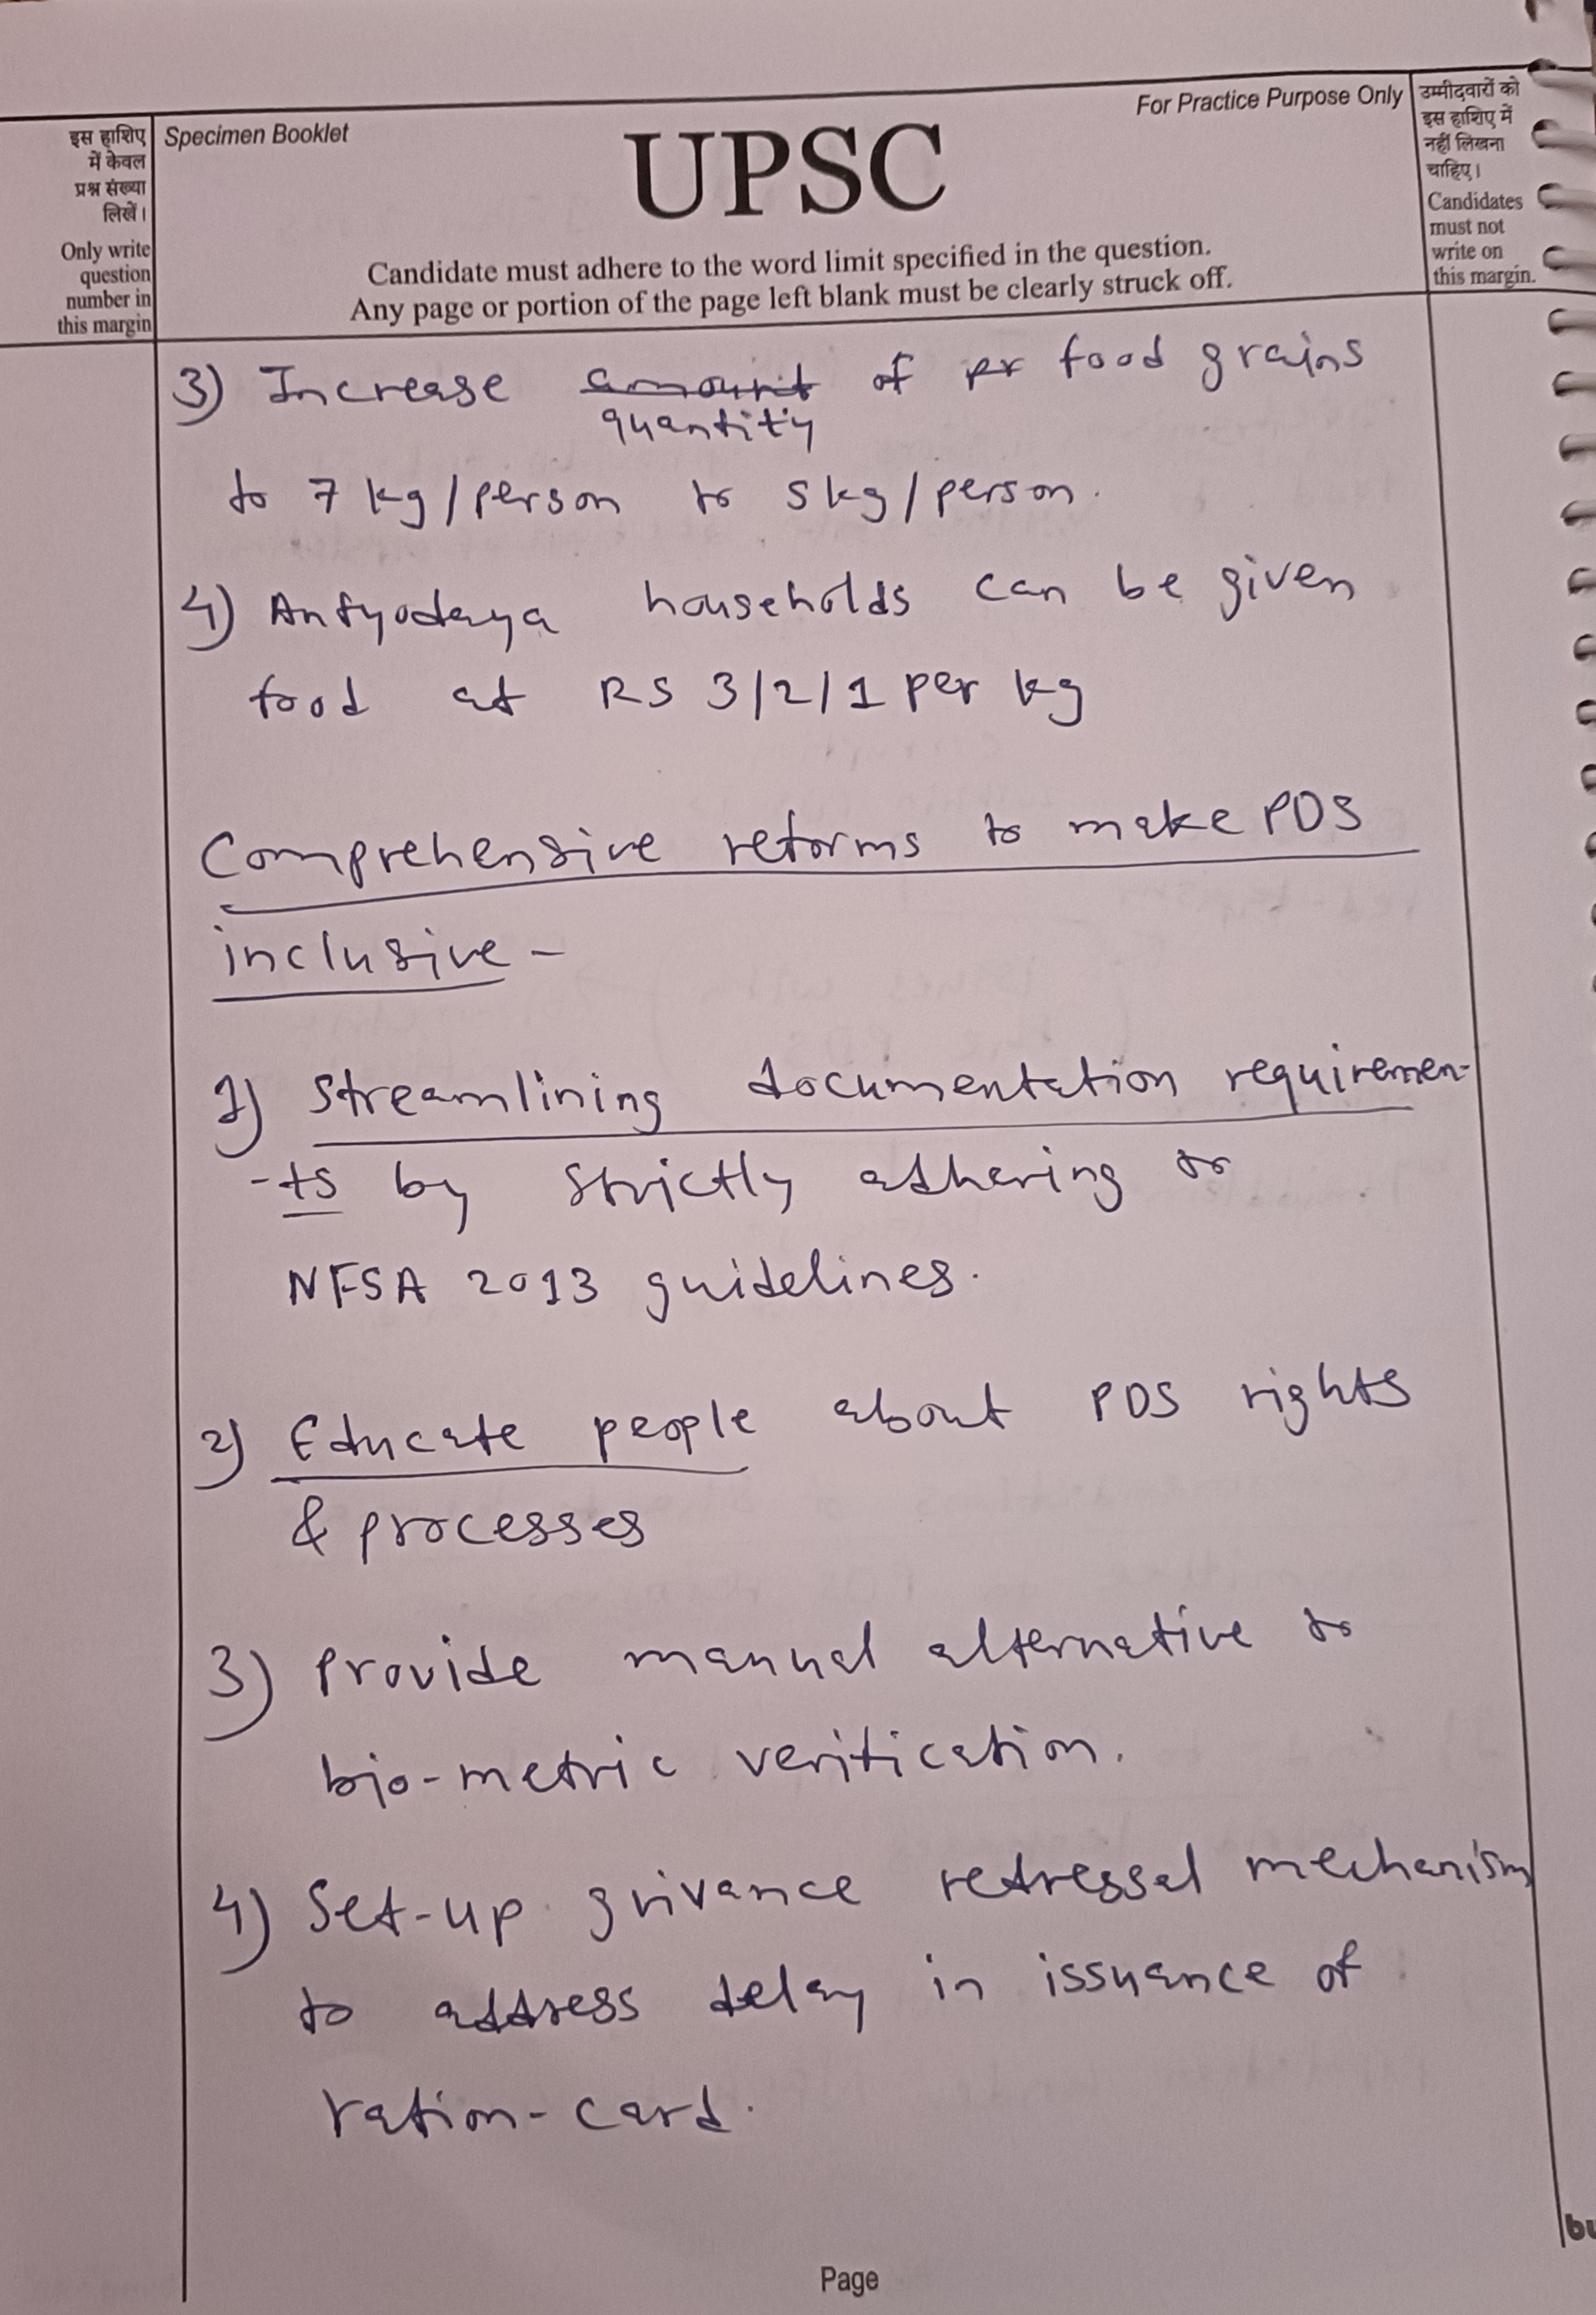 इस हाशिए
में केवल
प्रश्न संख्या
लिखें।
Only write
question
number in
this margin
Specimen Booklet
For Practice Purpose Only
UPSC
Candidate must adhere to the word limit specified in the question.
Any page or portion of the page left blank must be clearly struck off.
उम्मीदवारों को
इस हाशिए में
नहीं लिखना
चाहिए।
Candidates
must not
write on
this margin.
3) Increase amount of pr food grains
quantity
to 7 kg/person to 5kg/person.
4) Antyodaya households can be given
food at RS 3/2/1 per kg
Comprehensive reforms to make PDS
inclusive -
1) Streamlining documentation requiremen-
-ts by strictly adhering to
NFSA 2013 guidelines.
2) Educate people about PDS rights
& processes
3) Provide manual alternative to
bio-metric verification.
4) Set-up grivance redressal mechanism
to address delay in issuance of
ration-card.
Page